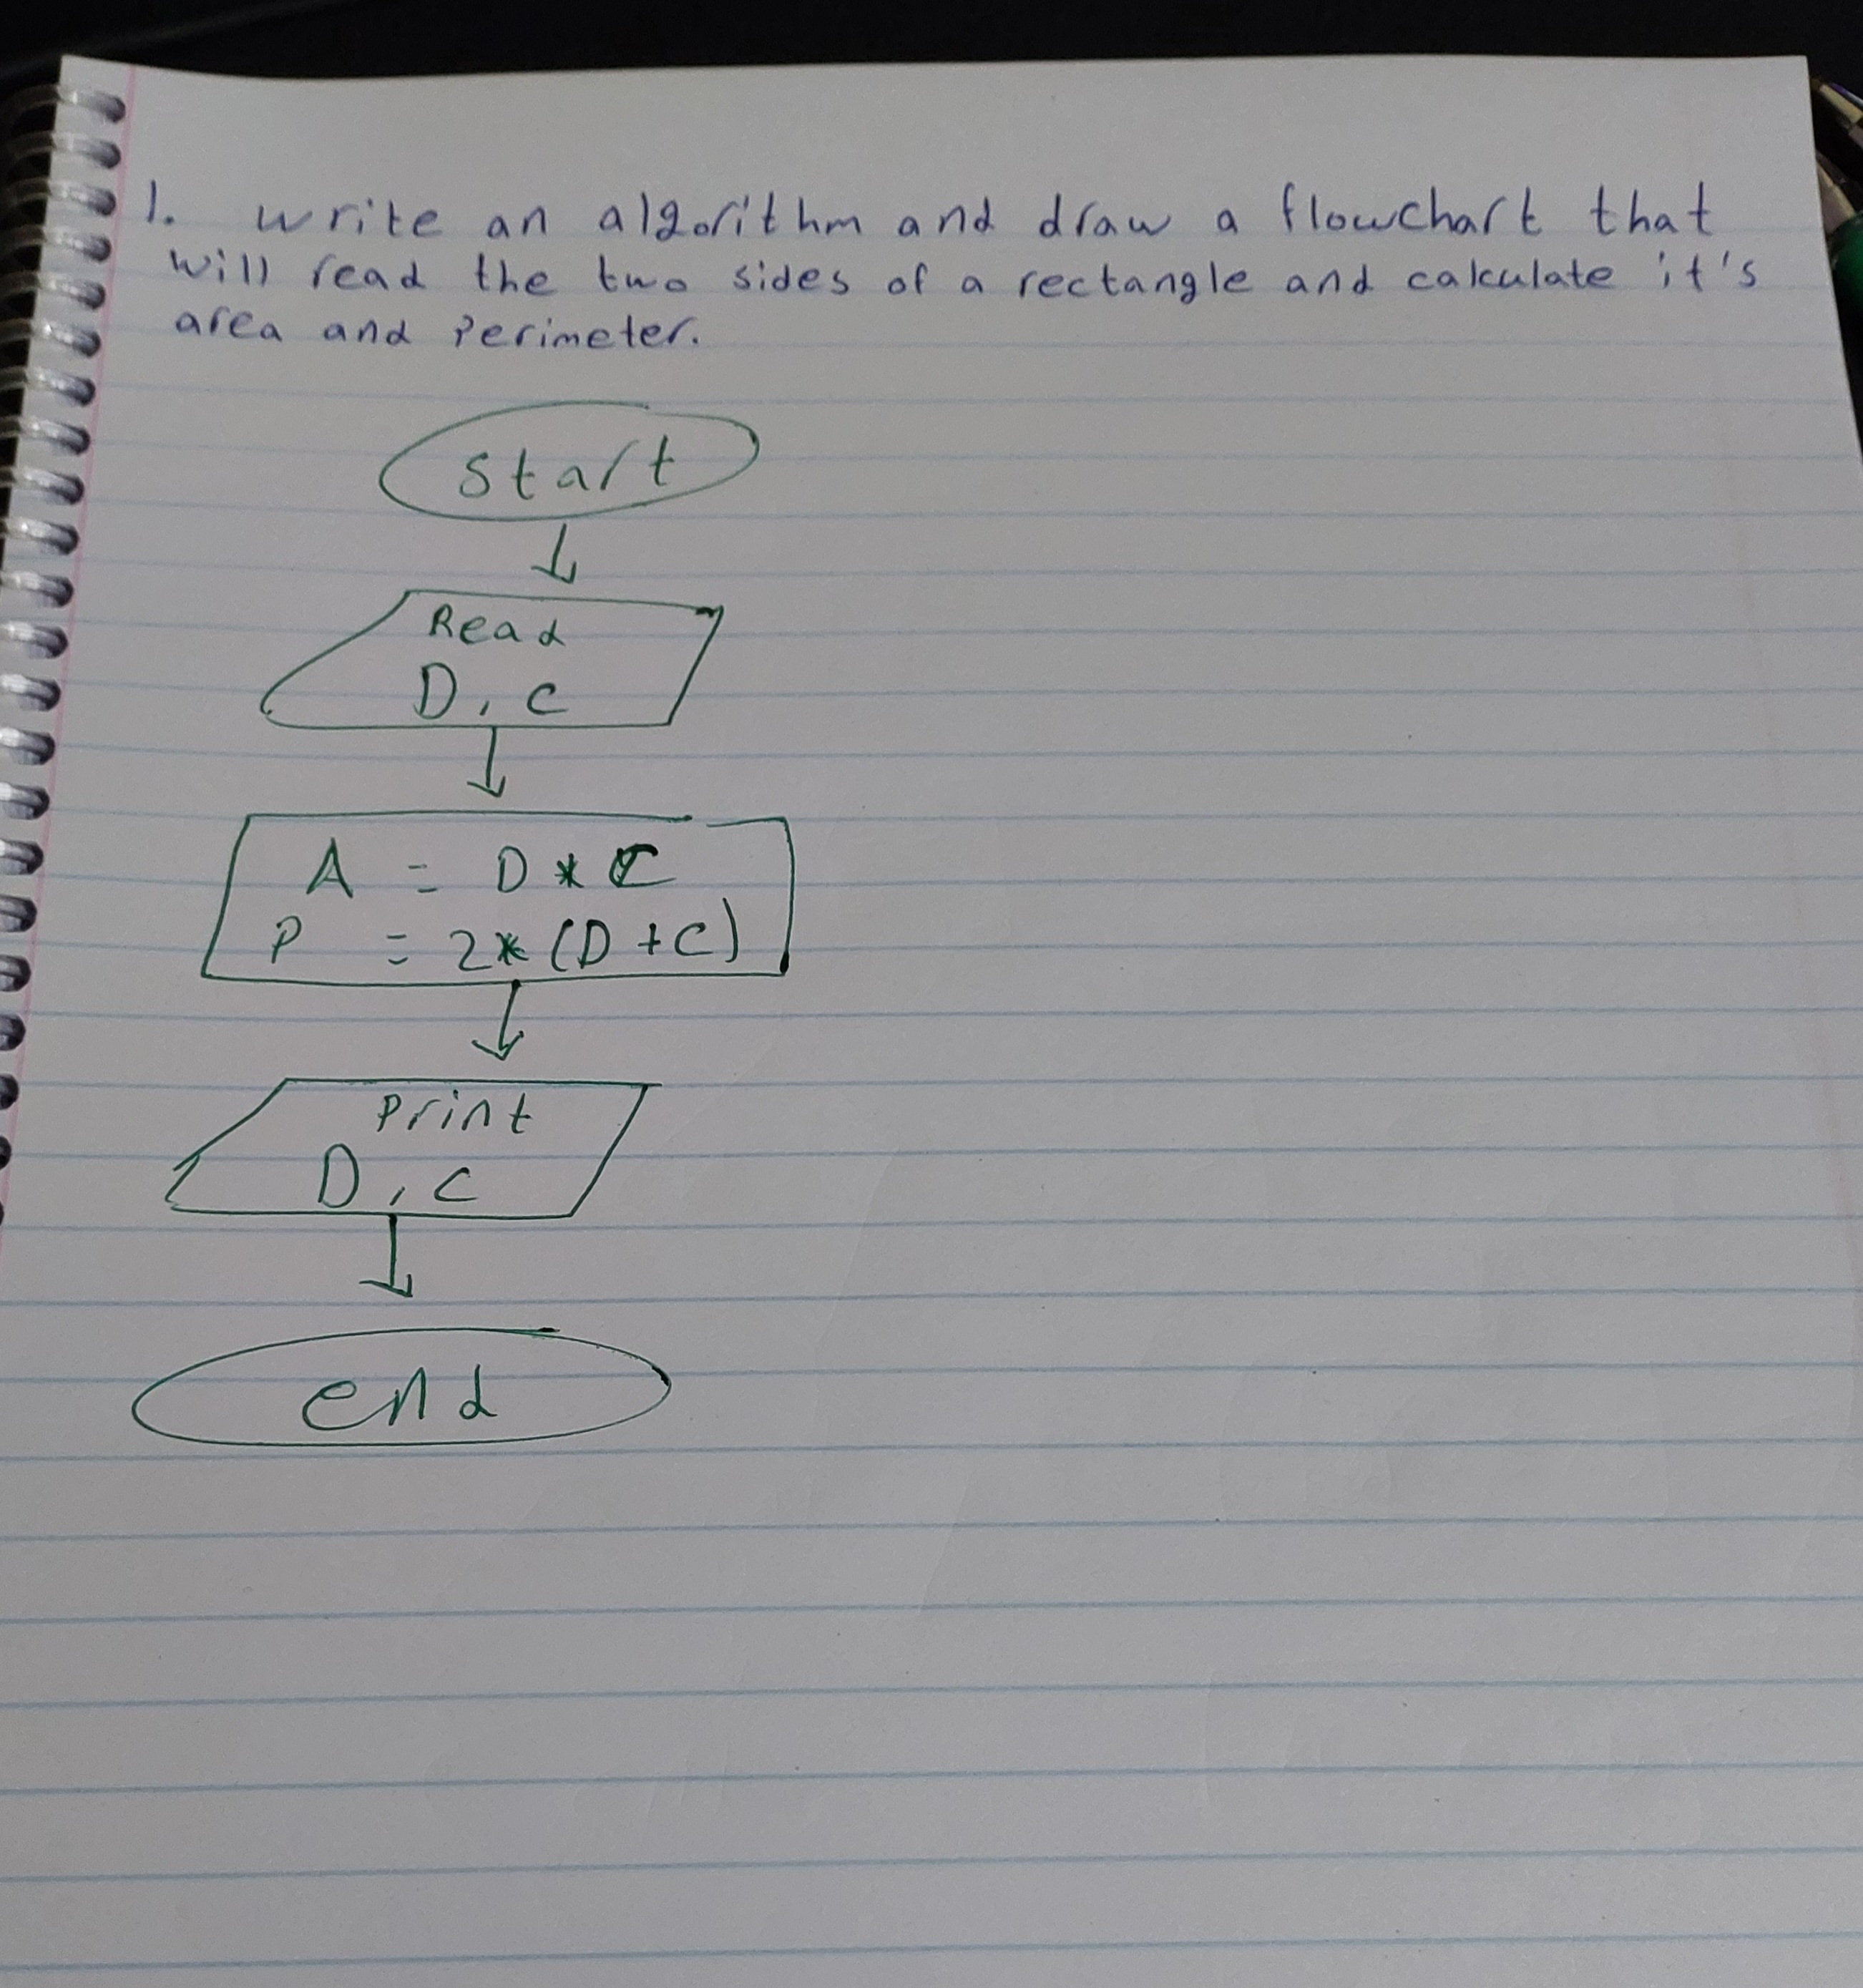 1. write an algorithm and draw a flowchart that
will read the two sides of a rectangle and calculate it's
area and Perimeter.
start
Read
D, C
A = D * C
P = 2* (D + C)
Print
D, C
end